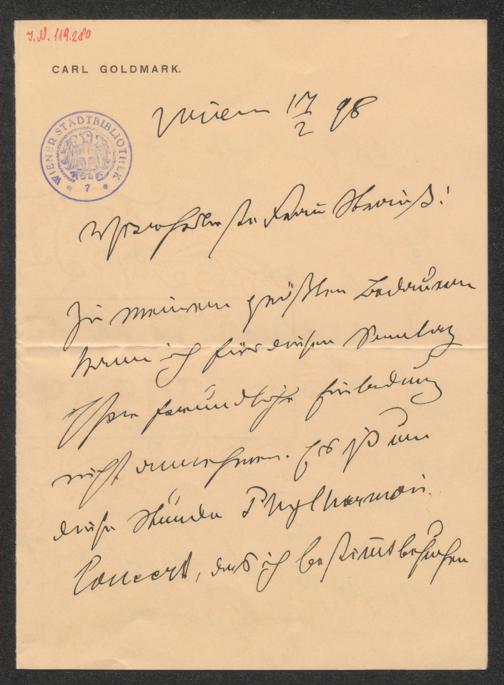 J.N. 119.280
CARL GOLDMARK.
Wien 17/2 98
WIENER STADTBIBLIOTHEK
7
Verehrteste Frau Strauß!
Zu meinem größten Bedauern
kann ich für diesen Sonntag
Ihre freundliche Einladung
nicht annehmen. Es ist um
diese Stunde Philharmon.
Concert, das ich bestimmt besuchen